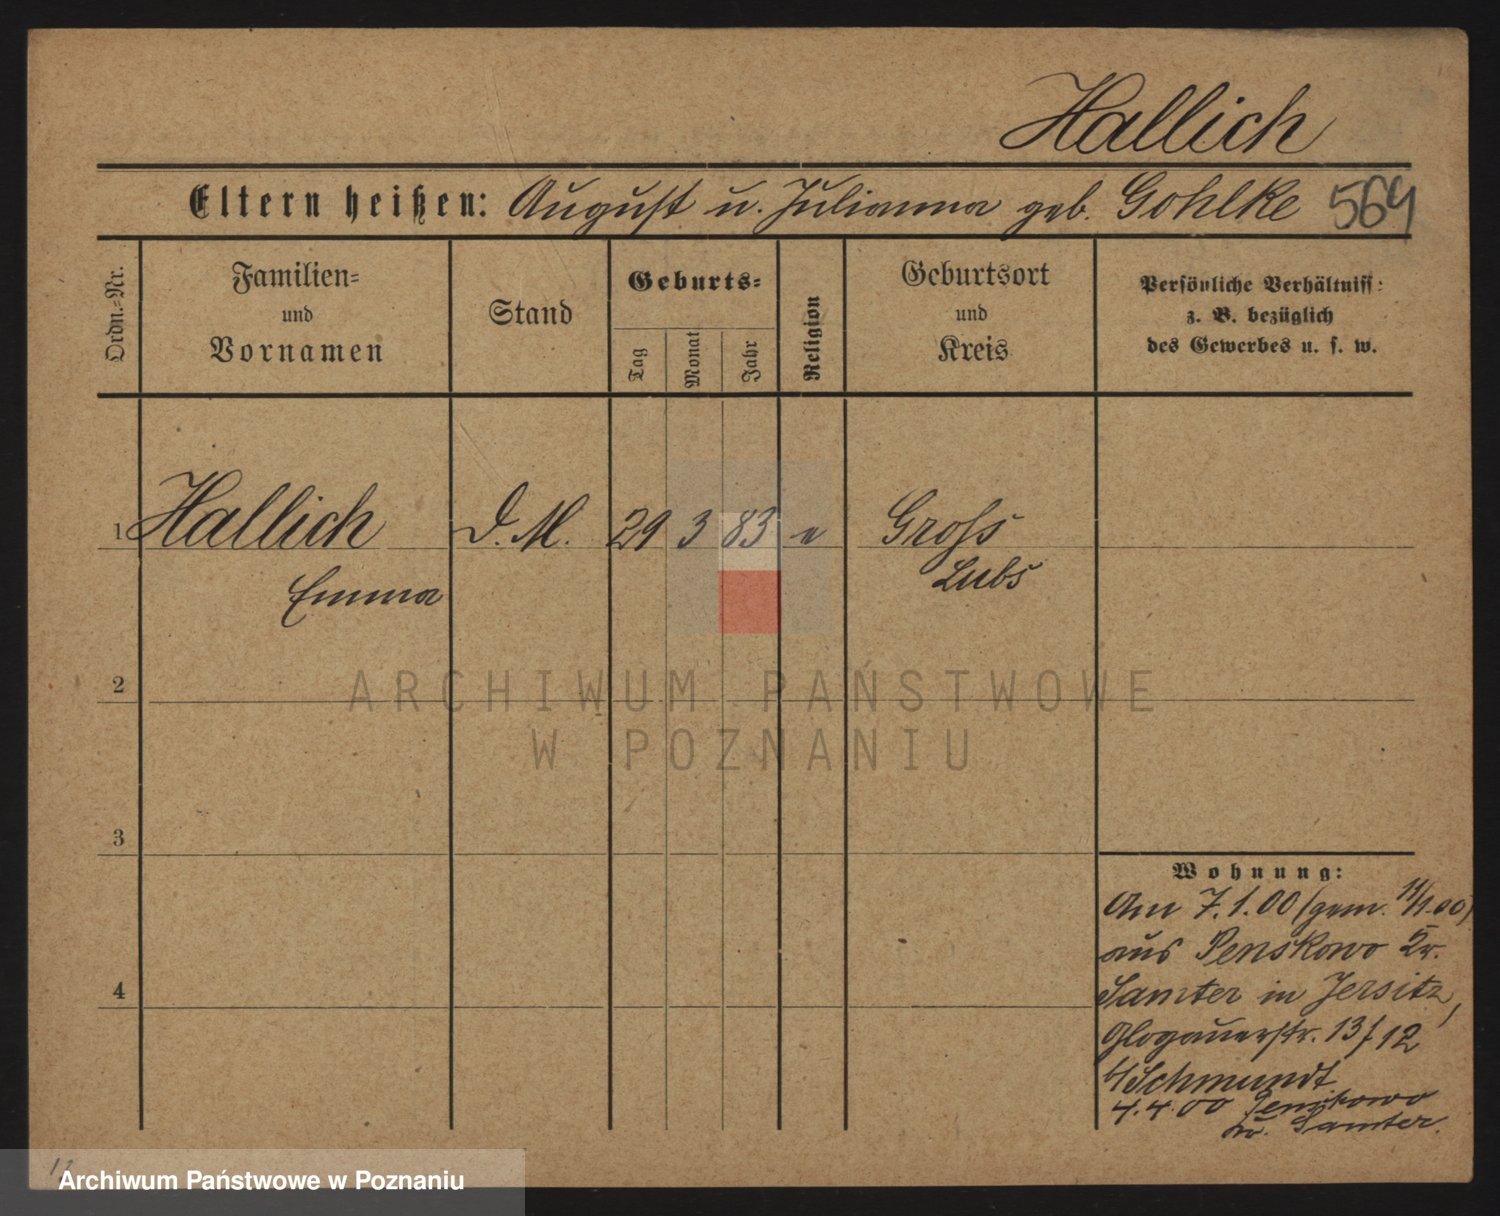 Hallich
Eltern heißen: August u. Julianna geb. Gohlke 564
Ordn.-Nr.
Familien-
und
Vornamen
Stand
Geburts-
Tag
Monat
Jahr
Religion
Geburtsort
und
Kreis
Persönliche Verhältniss:
z. B. bezüglich
des Gewerbes u. s. w.
1 Hallich D. M. 29 3 83 e Gross
Emma Lubs
2
ARCHIWUM PAŃSTWOWE
W POZNANIU
3
Wohnung:
Am 7.1.00 (gem. 11/1.00)
aus Penskowo Kr.
4
Samter in Jersitz,
Glogauerstr. 13 f 12
b/Schmundt
4.4.00 Penskowo
Kr. Samter.
Archiwum Państwowe w Poznaniu